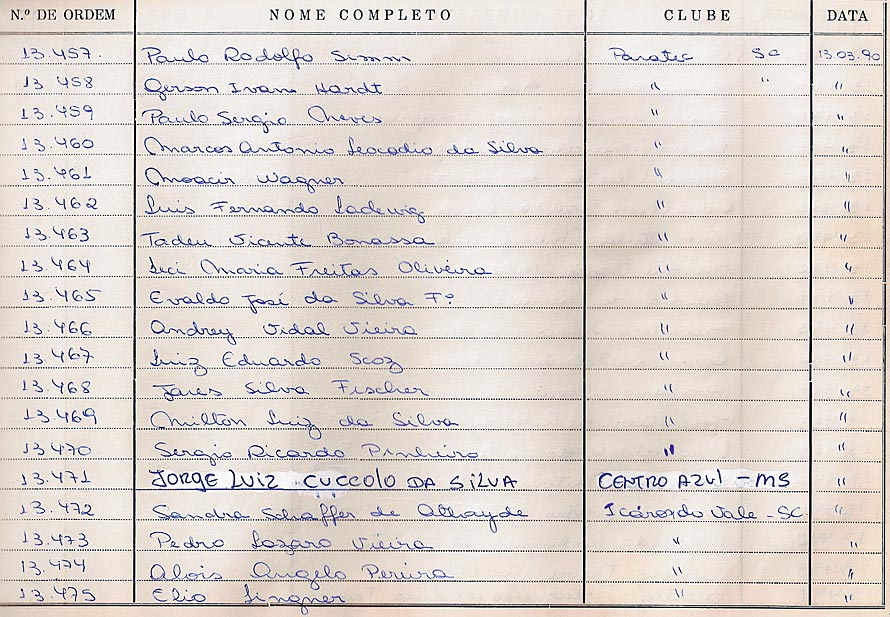 N.º DE ORDEM NOME COMPLETO CLUBE DATA
13.457. Paulo Rodolfo Simm Paratec SC 13.03.90
13 458 Gerson Ivan Hardt " " "
13.459 Paulo Sergio Neves " "
13.460 Marcos Antonio Leocadio da Silva " "
13.461 Moacir Wagner " "
13.462 Luis Fernando Ladewig " "
13.463 Tadeu Vicente Bonassa " "
13.464 Leci Maria Freitas Oliveira " "
13.465 Evaldo José da Silva Fº " "
13.466 Andrey Vidal Vieira " "
13.467 Luiz Eduardo Scoz " "
13.468 Jares Silva Fischer " "
13.469 Milton Luiz da Silva " "
13.470 Sergio Ricardo Pinheiro " "
13.471 JORGE LUIZ CUCCOLO DA SILVA CENTRO AZUL - MS "
13.472 Sandra Schaffer de Athayde Icáros do Vale - SC "
13.473 Pedro Lazaro Vieira " "
13.474 Alois Angelo Pereira " "
13.475 Elio Lingner " "